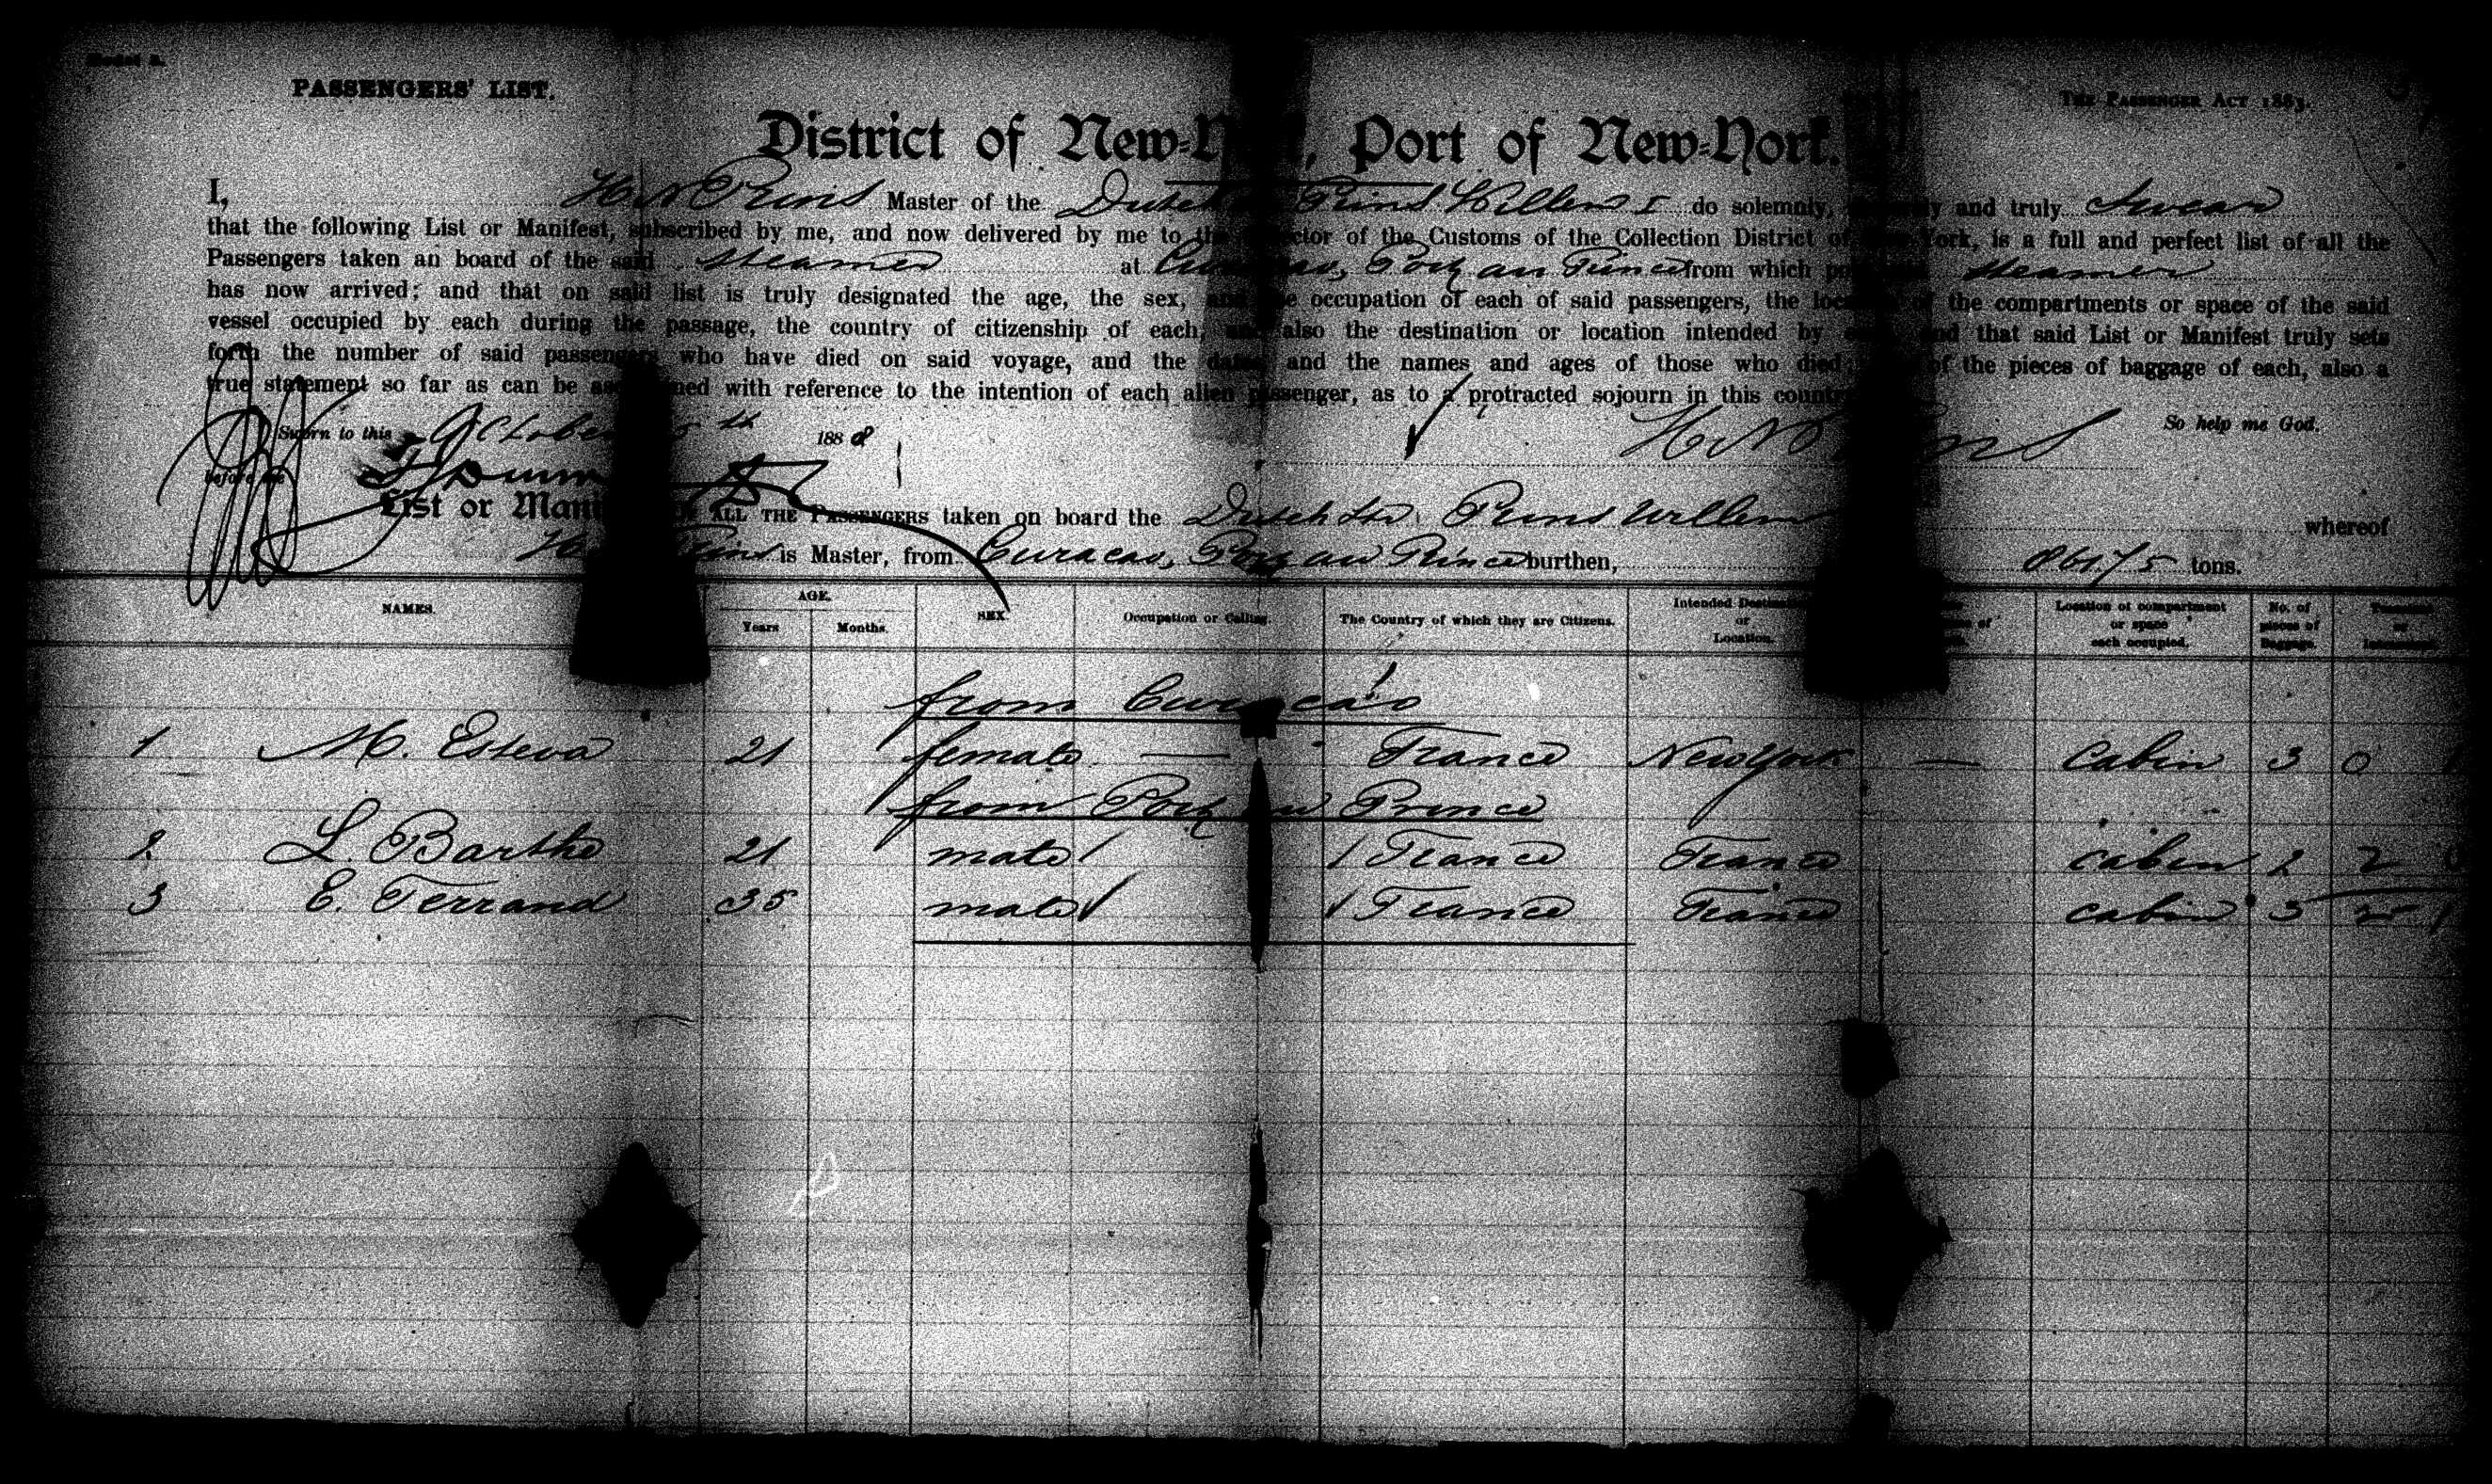 PASSENGERS' LIST.
THE PASSENGER ACT 188
District of New-Y, Port of New-York.
I, H N Prins Master of the Dutch Prins Willem I do solemnly, and truly Swear
that the following List or Manifest, subscribed by me, and now delivered by me to the ctor of the Customs of the Collection District of York, is a full and perfect list of all the
Passengers taken an board of the said steamer at Curacao, Port au Prince from which steamer
has now arrived; and that on said list is truly designated the age, the sex, and the occupation of each of said passengers, the of the compartments or space of the said
vessel occupied by each during the passage, the country of citizenship of each, and also the destination or location intended by and that said List or Manifest truly sets
forth the number of said passengers who have died on said voyage, and the dates and the names and ages of those who died, of the pieces of baggage of each, also a
true statement so far as can be ascertained with reference to the intention of each alien passenger, as to a protracted sojourn in this country
Sworn to this October th 1888 So help me God.
H N Prins
before me
List or Mani ALL THE PASSENGERS taken on board the Dutch Str. Prins Willem whereof
H Prins is Master, from Curacao, Port au Prince burthen, 861.75 tons.
NAMES. AGE. Years Months. SEX. Occupation or Calling. The Country of which they are Citizens. Intended Destination or Location. Location of compartment or space each occupied. No. of pieces of Baggage.
from Curacao
1 M. Esteva 21 female — France New York — cabin 3 0
from Port au Prince
2 L. Barthe 21 male France France cabin 2 2
3 E. Ferrand 35 male France France cabin 3